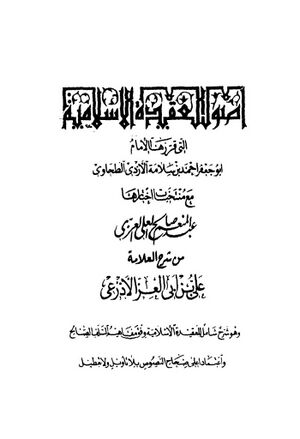 أصول العقيدة الإسلامية
التي قررها الإمام
أبو جعفر أحمد بن سلامة الأزدي الطحاوي
مع منتخبات اختارها
عبد المنعم صالح العلي العزي
من شرح العلامة
علي بن أبي العز الأذرعي
وهو شرح شامل للعقيدة الإسلامية وفق مذهب السلف الصالح
واعتماد على منهاج النصوص بلا تأويل ولا تعطيل